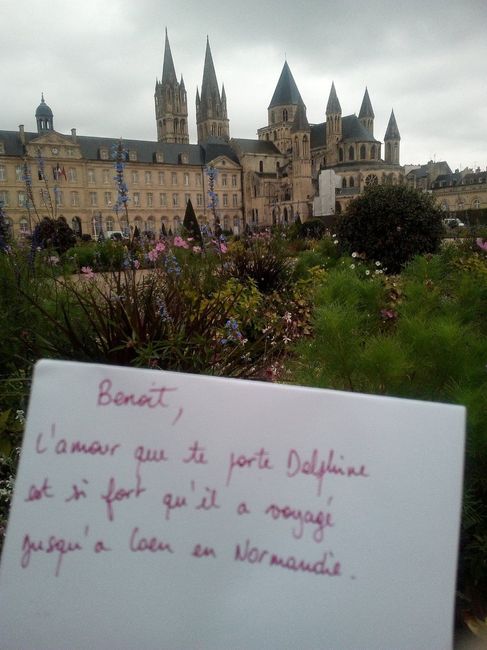 Benoit,
L'amour que te porte Delphine
est si fort qu'il a voyagé
jusqu'a Caen en Normandie.